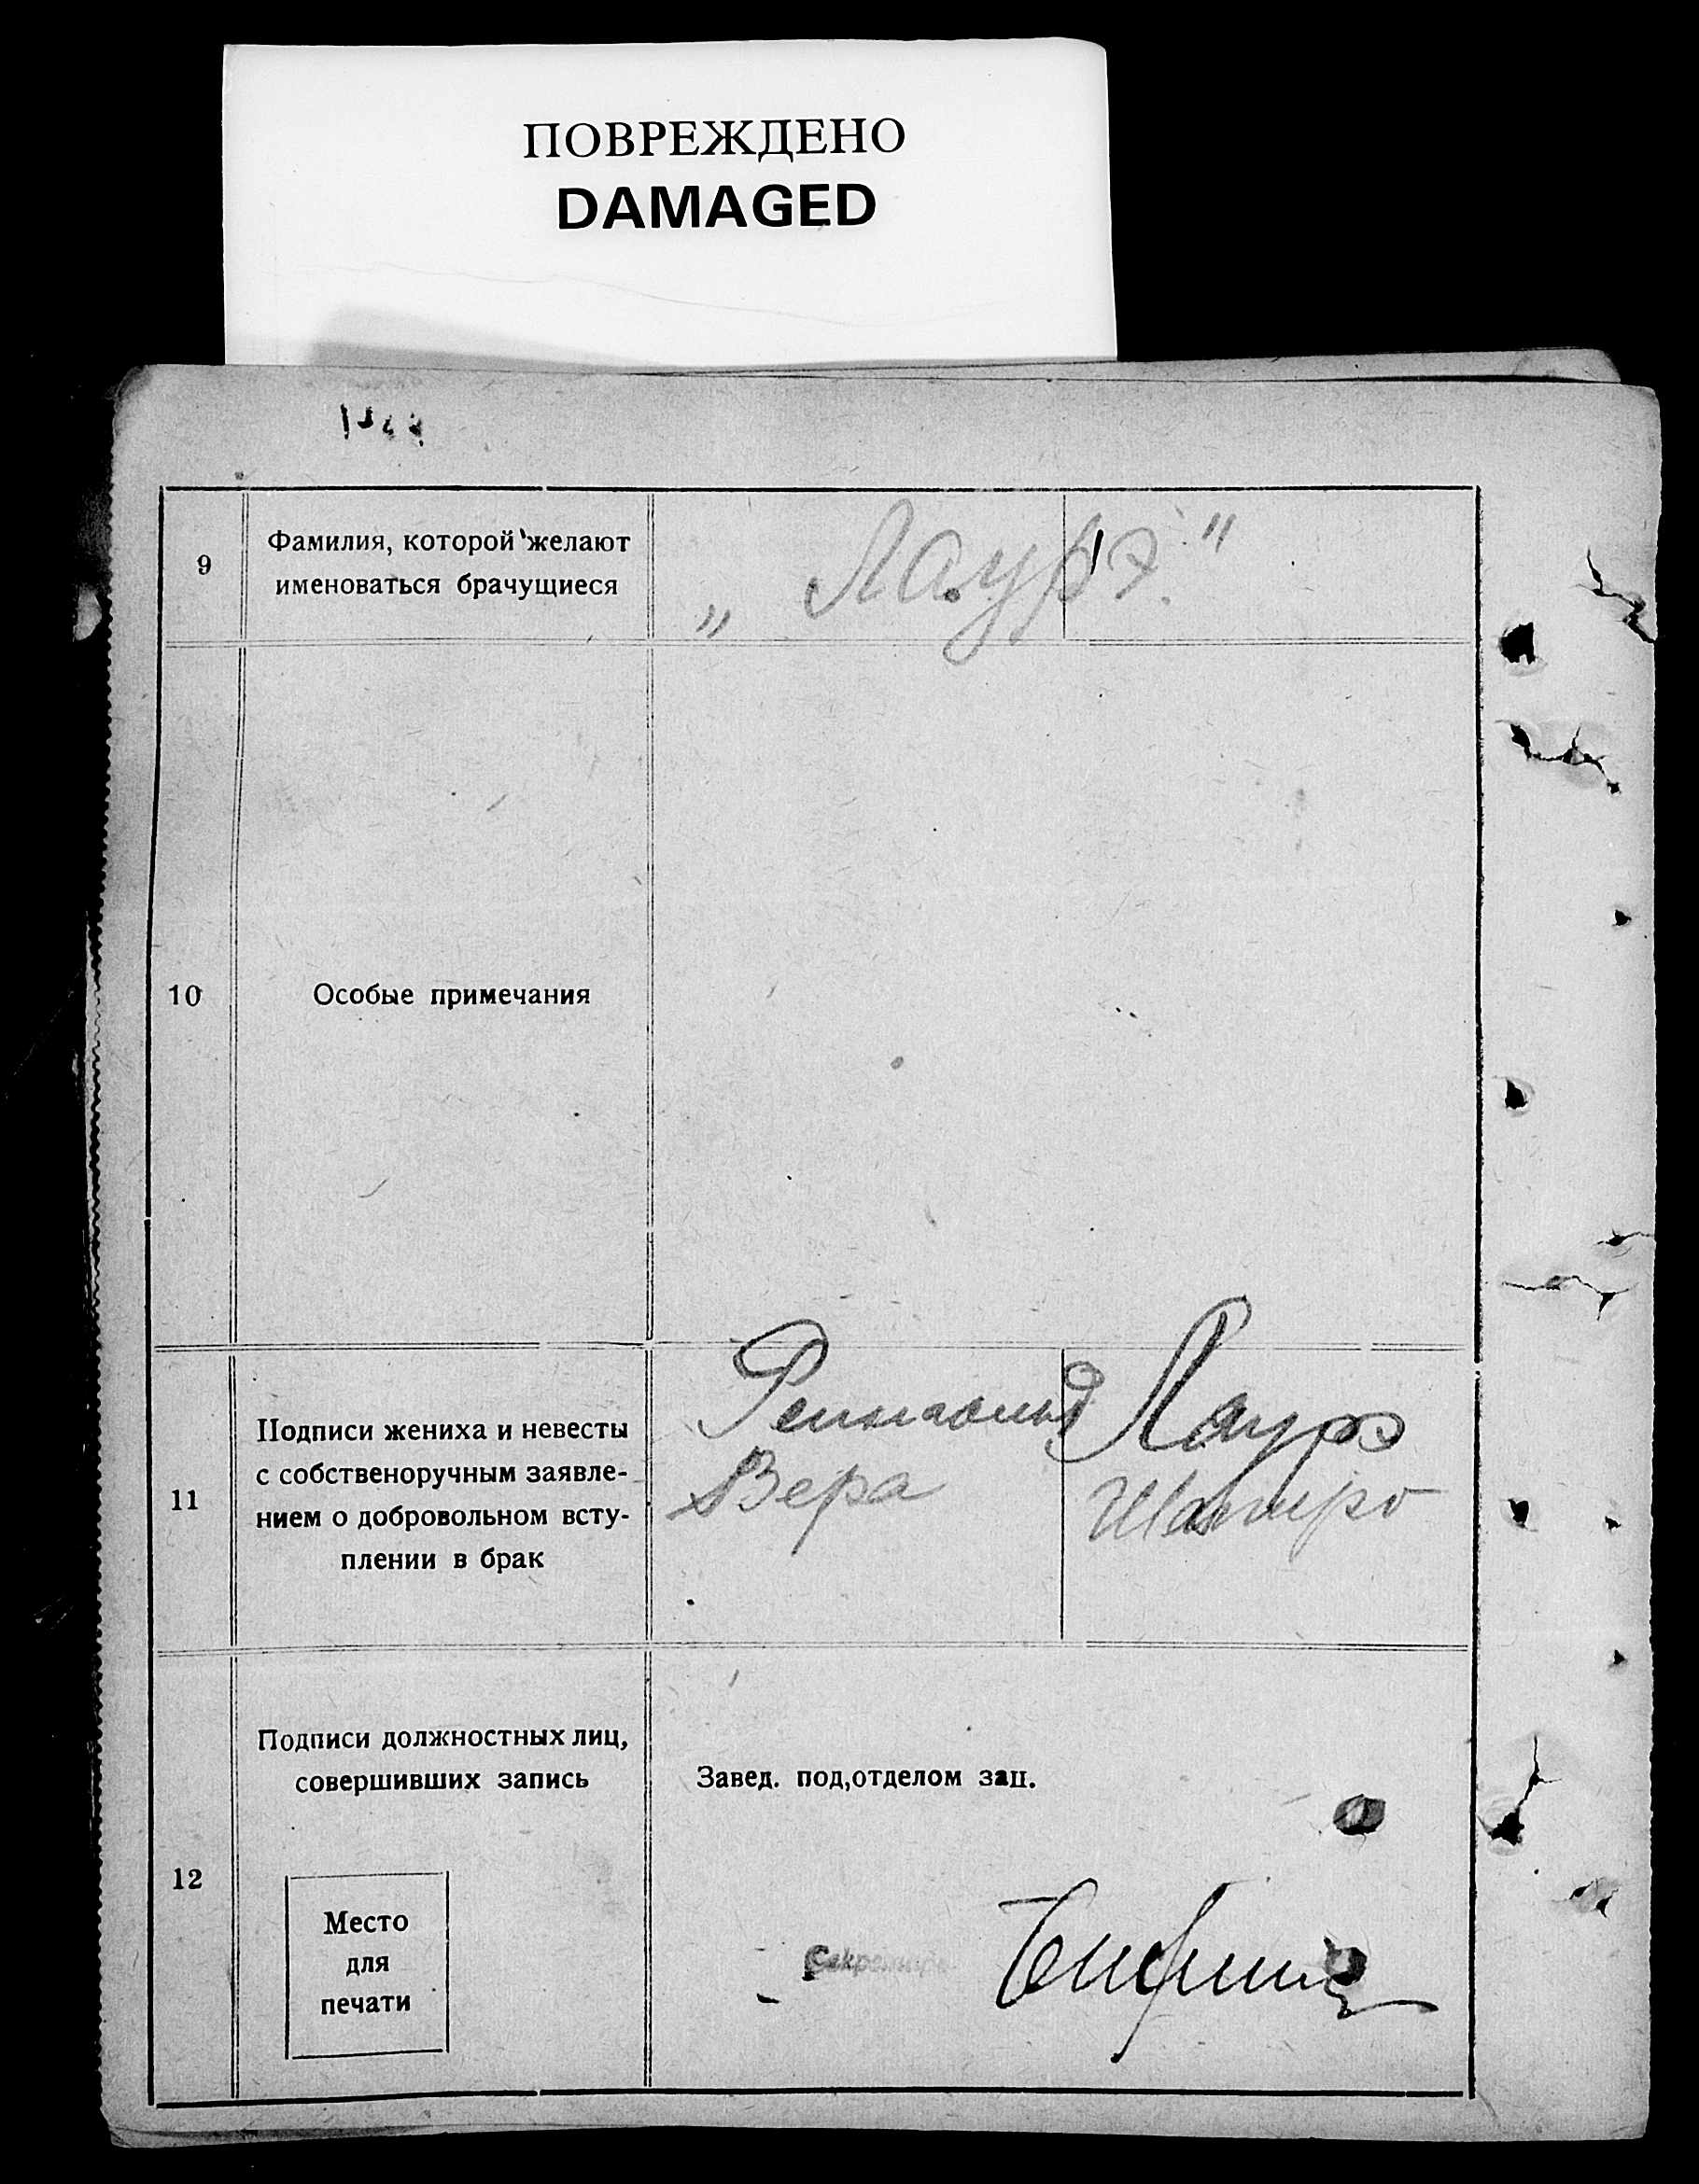 ПОВРЕЖДЕНО
DAMAGED
9
Фамилия, которой желают
именоваться брачущиеся
„ Лаурэ."
10
Особые примечания
11
Подписи жениха и невесты
с собственоручным заявле-
нием о добровольном всту-
плении в брак
Лаурэ
Вера Шапиро
12
Подписи должностных лиц,
совершивших запись
Завед. под,отделом зап.
Место
для
печати
Секретарь